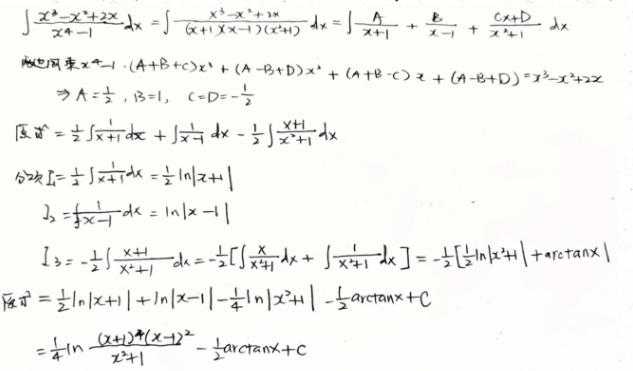 ∫ (x³-x²+2x)/(x⁴-1) dx = ∫ (x³-x²+2x)/((x+1)(x-1)(x²+1)) dx = ∫ A/(x+1) + B/(x-1) + (Cx+D)/(x²+1) dx
两边同乘x⁴-1. (A+B+C)x³ + (A-B+D)x² + (A+B-C)x + (A-B+D) = x³-x²+2x
⇒ A=1/2, B=1, C=D=-1/2
原式 = 1/2 ∫ 1/(x+1) dx + ∫ 1/(x-1) dx - 1/2 ∫ (x+1)/(x²+1) dx
分次 I₁ = 1/2 ∫ 1/(x+1) dx = 1/2 ln|x+1|
I₂ = ∫ 1/(x-1) dx = ln|x-1|
I₃ = -1/2 ∫ (x+1)/(x²+1) dx = -1/2 [∫ x/(x²+1) dx + ∫ 1/(x²+1) dx] = -1/2 [1/2 ln|x²+1| + arctanx|
原式 = 1/2 ln|x+1| + ln|x-1| - 1/4 ln|x²+1| - 1/2 arctanx + C
= 1/4 ln ((x+1)⁴(x-1)²)/(x²+1) - 1/2 arctanx + C